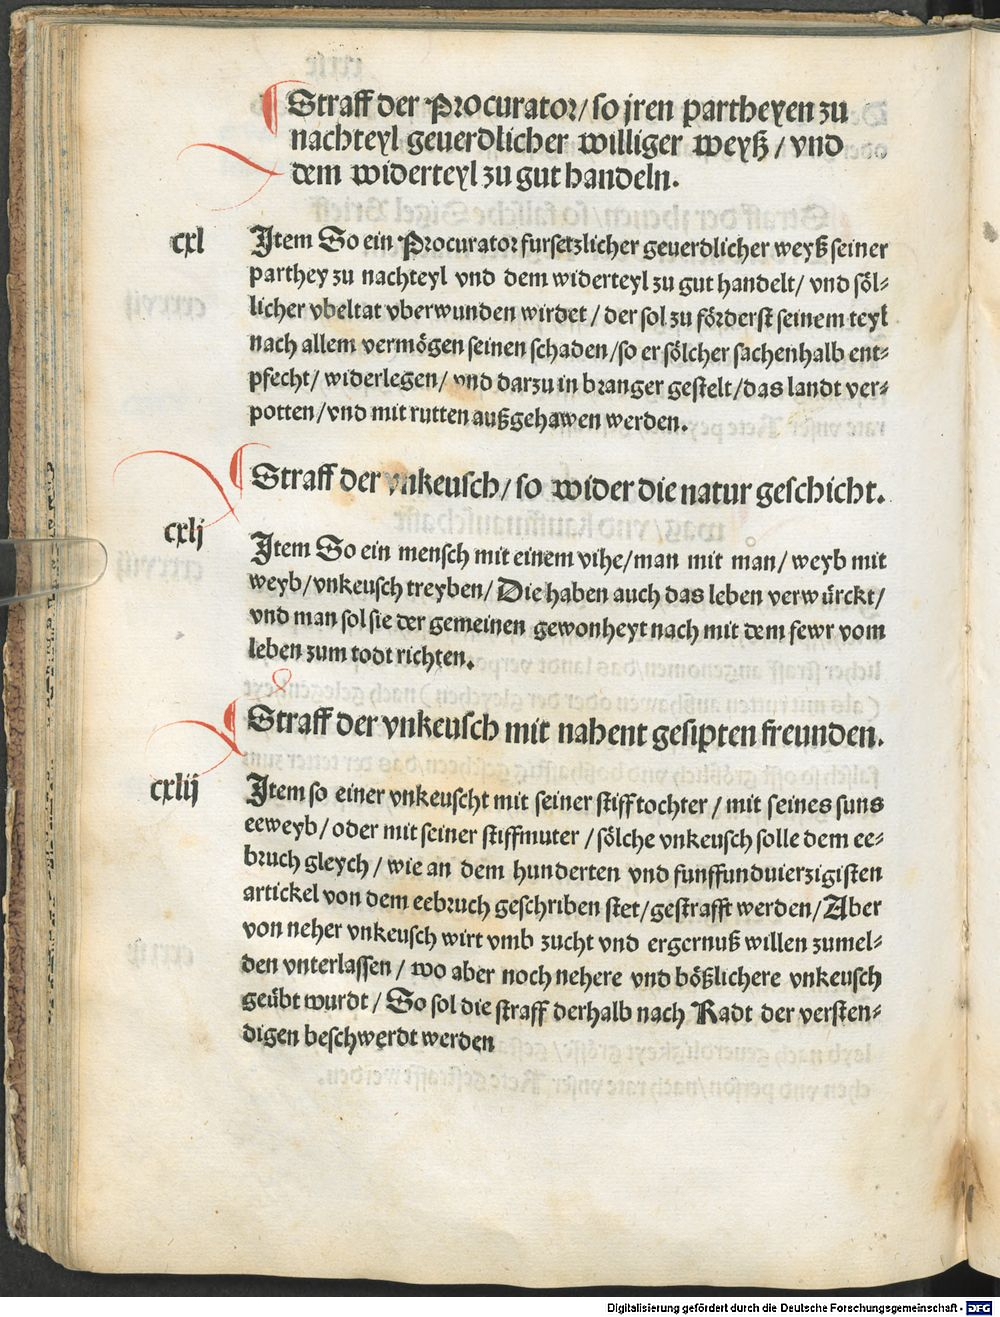 Straff der Procurator/ so jren partheyen zu
nachteyl geuerdlicher williger weyß/ vnd
dem widerteyl zu gut handeln.
cxl
Item So ein Procurator fursetzlicher geuerdlicher weyß seiner
parthey zu nachteyl vnd dem widerteyl zu gut handelt/ vnd söl⸗
licher vbeltat vberwunden wirdet/ der sol zu förderst seinem teyl
nach allem vermögen seinen schaden/ so er sölcher sachenhalb ent⸗
pfecht/ widerlegen/ vnd darzu in branger gestelt/ das landt ver⸗
potten/ vnd mit rutten außgehawen werden.
Straff der vnkeusch/ so wider die natur geschicht.
cxlj
Item So ein mensch mit einem vihe/ man mit man/ weyb mit
weyb/ vnkeusch treyben/ Die haben auch das leben verwürckt/
vnd man sol sie der gemeinen gewonheyt nach mit dem fewr vom
leben zum todt richten.
Straff der vnkeusch mit nahent gesipten freunden.
cxlij
Item so einer vnkeuscht mit seiner stifftochter/ mit seines suns
eeweyb/ oder mit seiner stiffmuter/ sölche vnkeusch solle dem ee⸗
bruch gleych/ wie an dem hunderten vnd funffunduierzigisten
artickel von dem eebruch geschriben stet/ gestrafft werden/ Aber
von neher vnkeusch wirt vmb zucht vnd ergernuß willen zumel⸗
den vnterlassen/ wo aber noch nehere vnd bößlichere vnkeusch
geübt wurdt/ So sol die straff derhalb nach Radt der versten⸗
digen beschwerdt werden
Digitalisierung gefördert durch die Deutsche Forschungsgemeinschaft - DFG